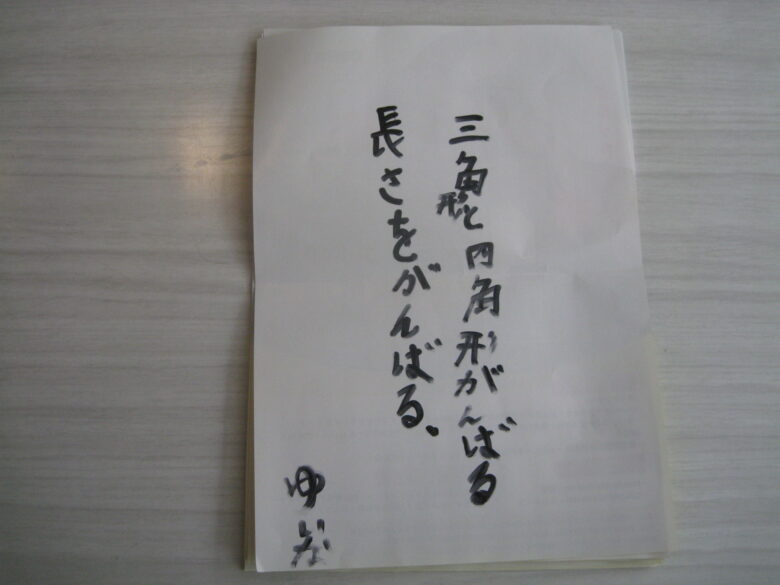 三角形と四角形がんばる
長さをがんばる。
ゆいな